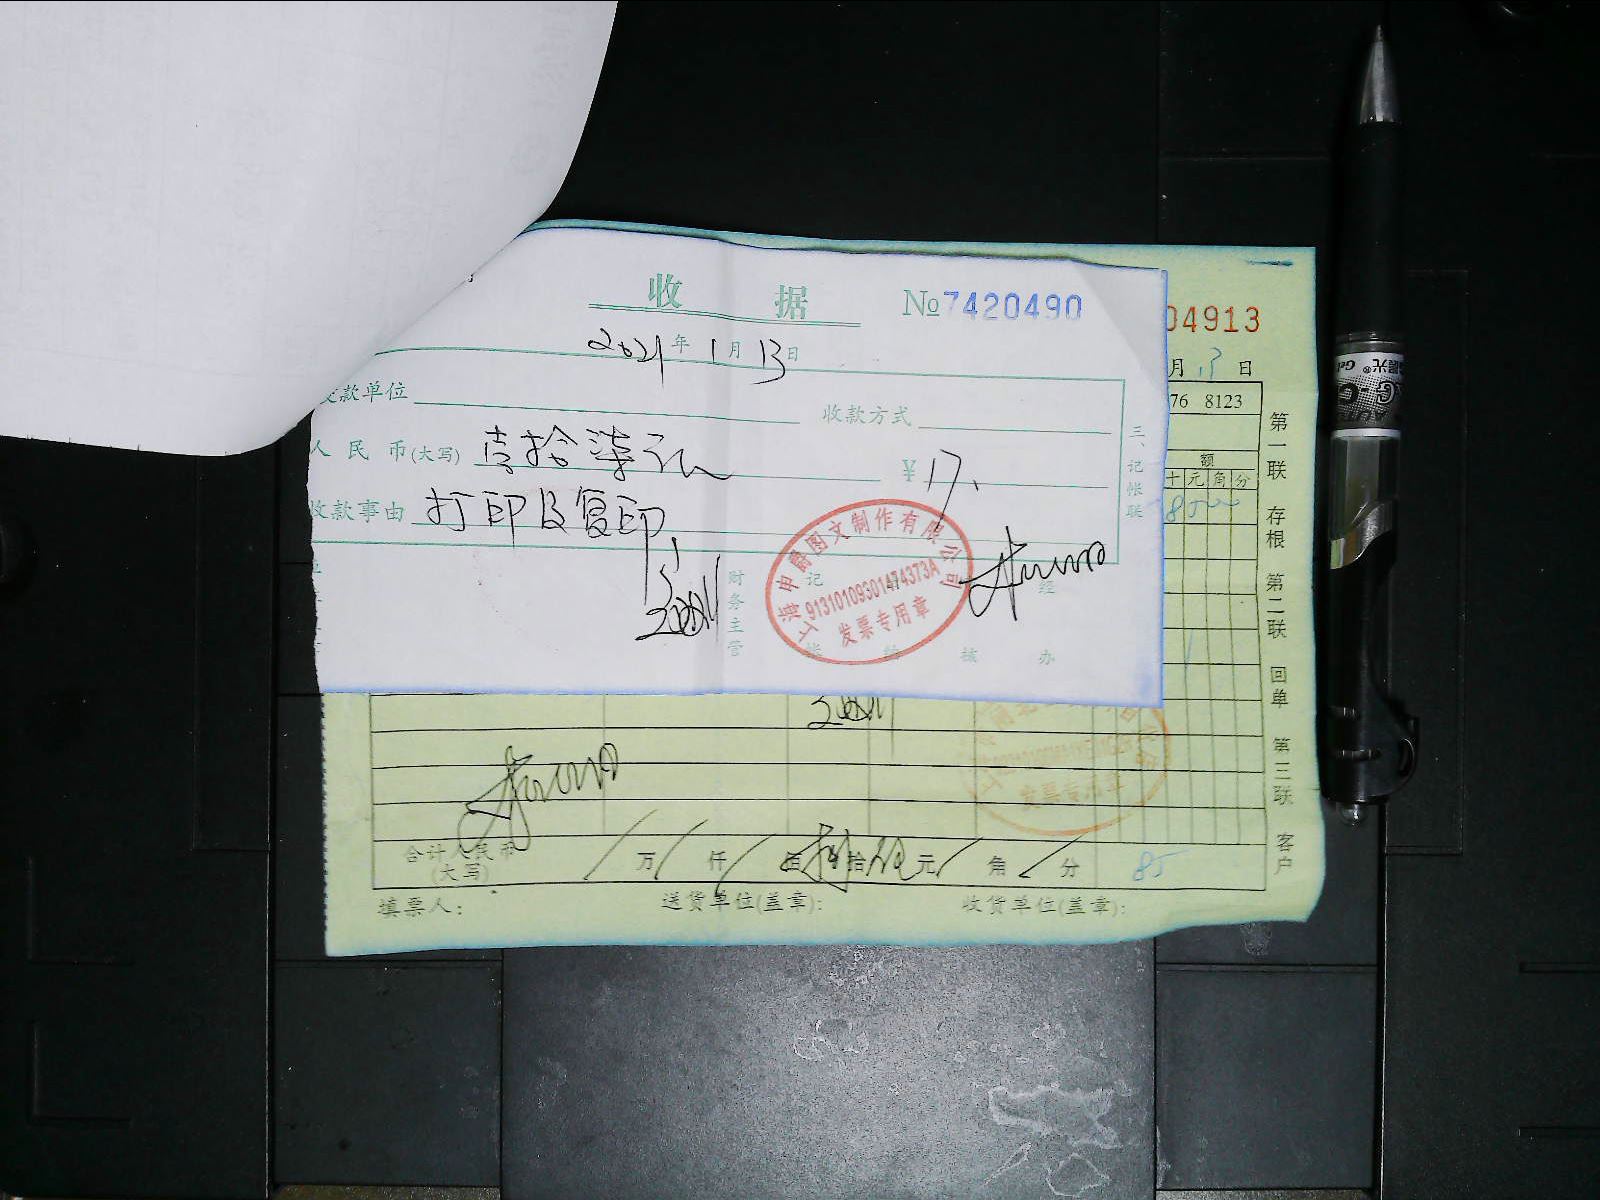 收 据 №7420490
2021年1月13日
款单位 收款方式
人民币(大写) 壹拾柒元 ¥17.
收款事由 打印及复印
三、记帐联
财务主管 记帐 核 经办
上海申爵图文制作有限公司
91310109301474373A
发票专用章
04913
月13日
76 8123
额
十元角分
8500
第一联 存根 第二联 回单 第三联 客户
发票专用章
合计人民币(大写) 万 仟 佰 捌拾伍元 角 分 85
填票人: 送货单位(盖章): 收货单位(盖章):